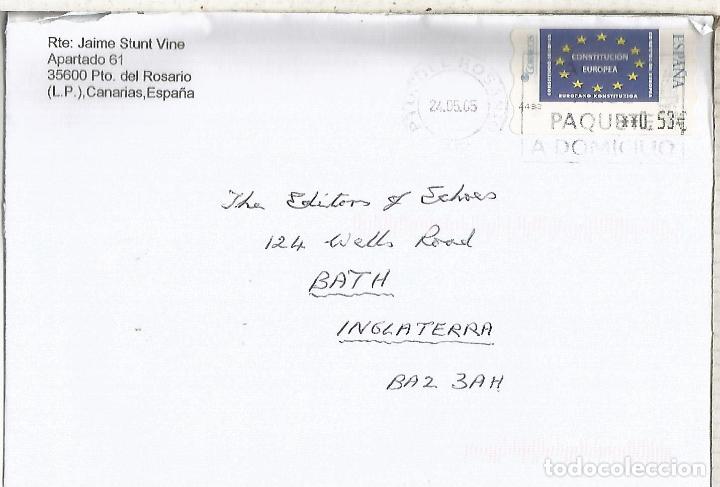 Rte: Jaime Stunt Vine
Apartado 61
35600 Pto. del Rosario
(L.P.),Canarias,España
24.05.05
Correos
CONSTITUCIÓN
EUROPEA
EUROPAKO KONSTITUZIOA
ESPAÑA
PAQUETE
**0,53€
A DOMICILIO
The Editors of Echoes
124 Wells Road
BATH
INGLATERRA
BA2 3AH
todocoleccion.net